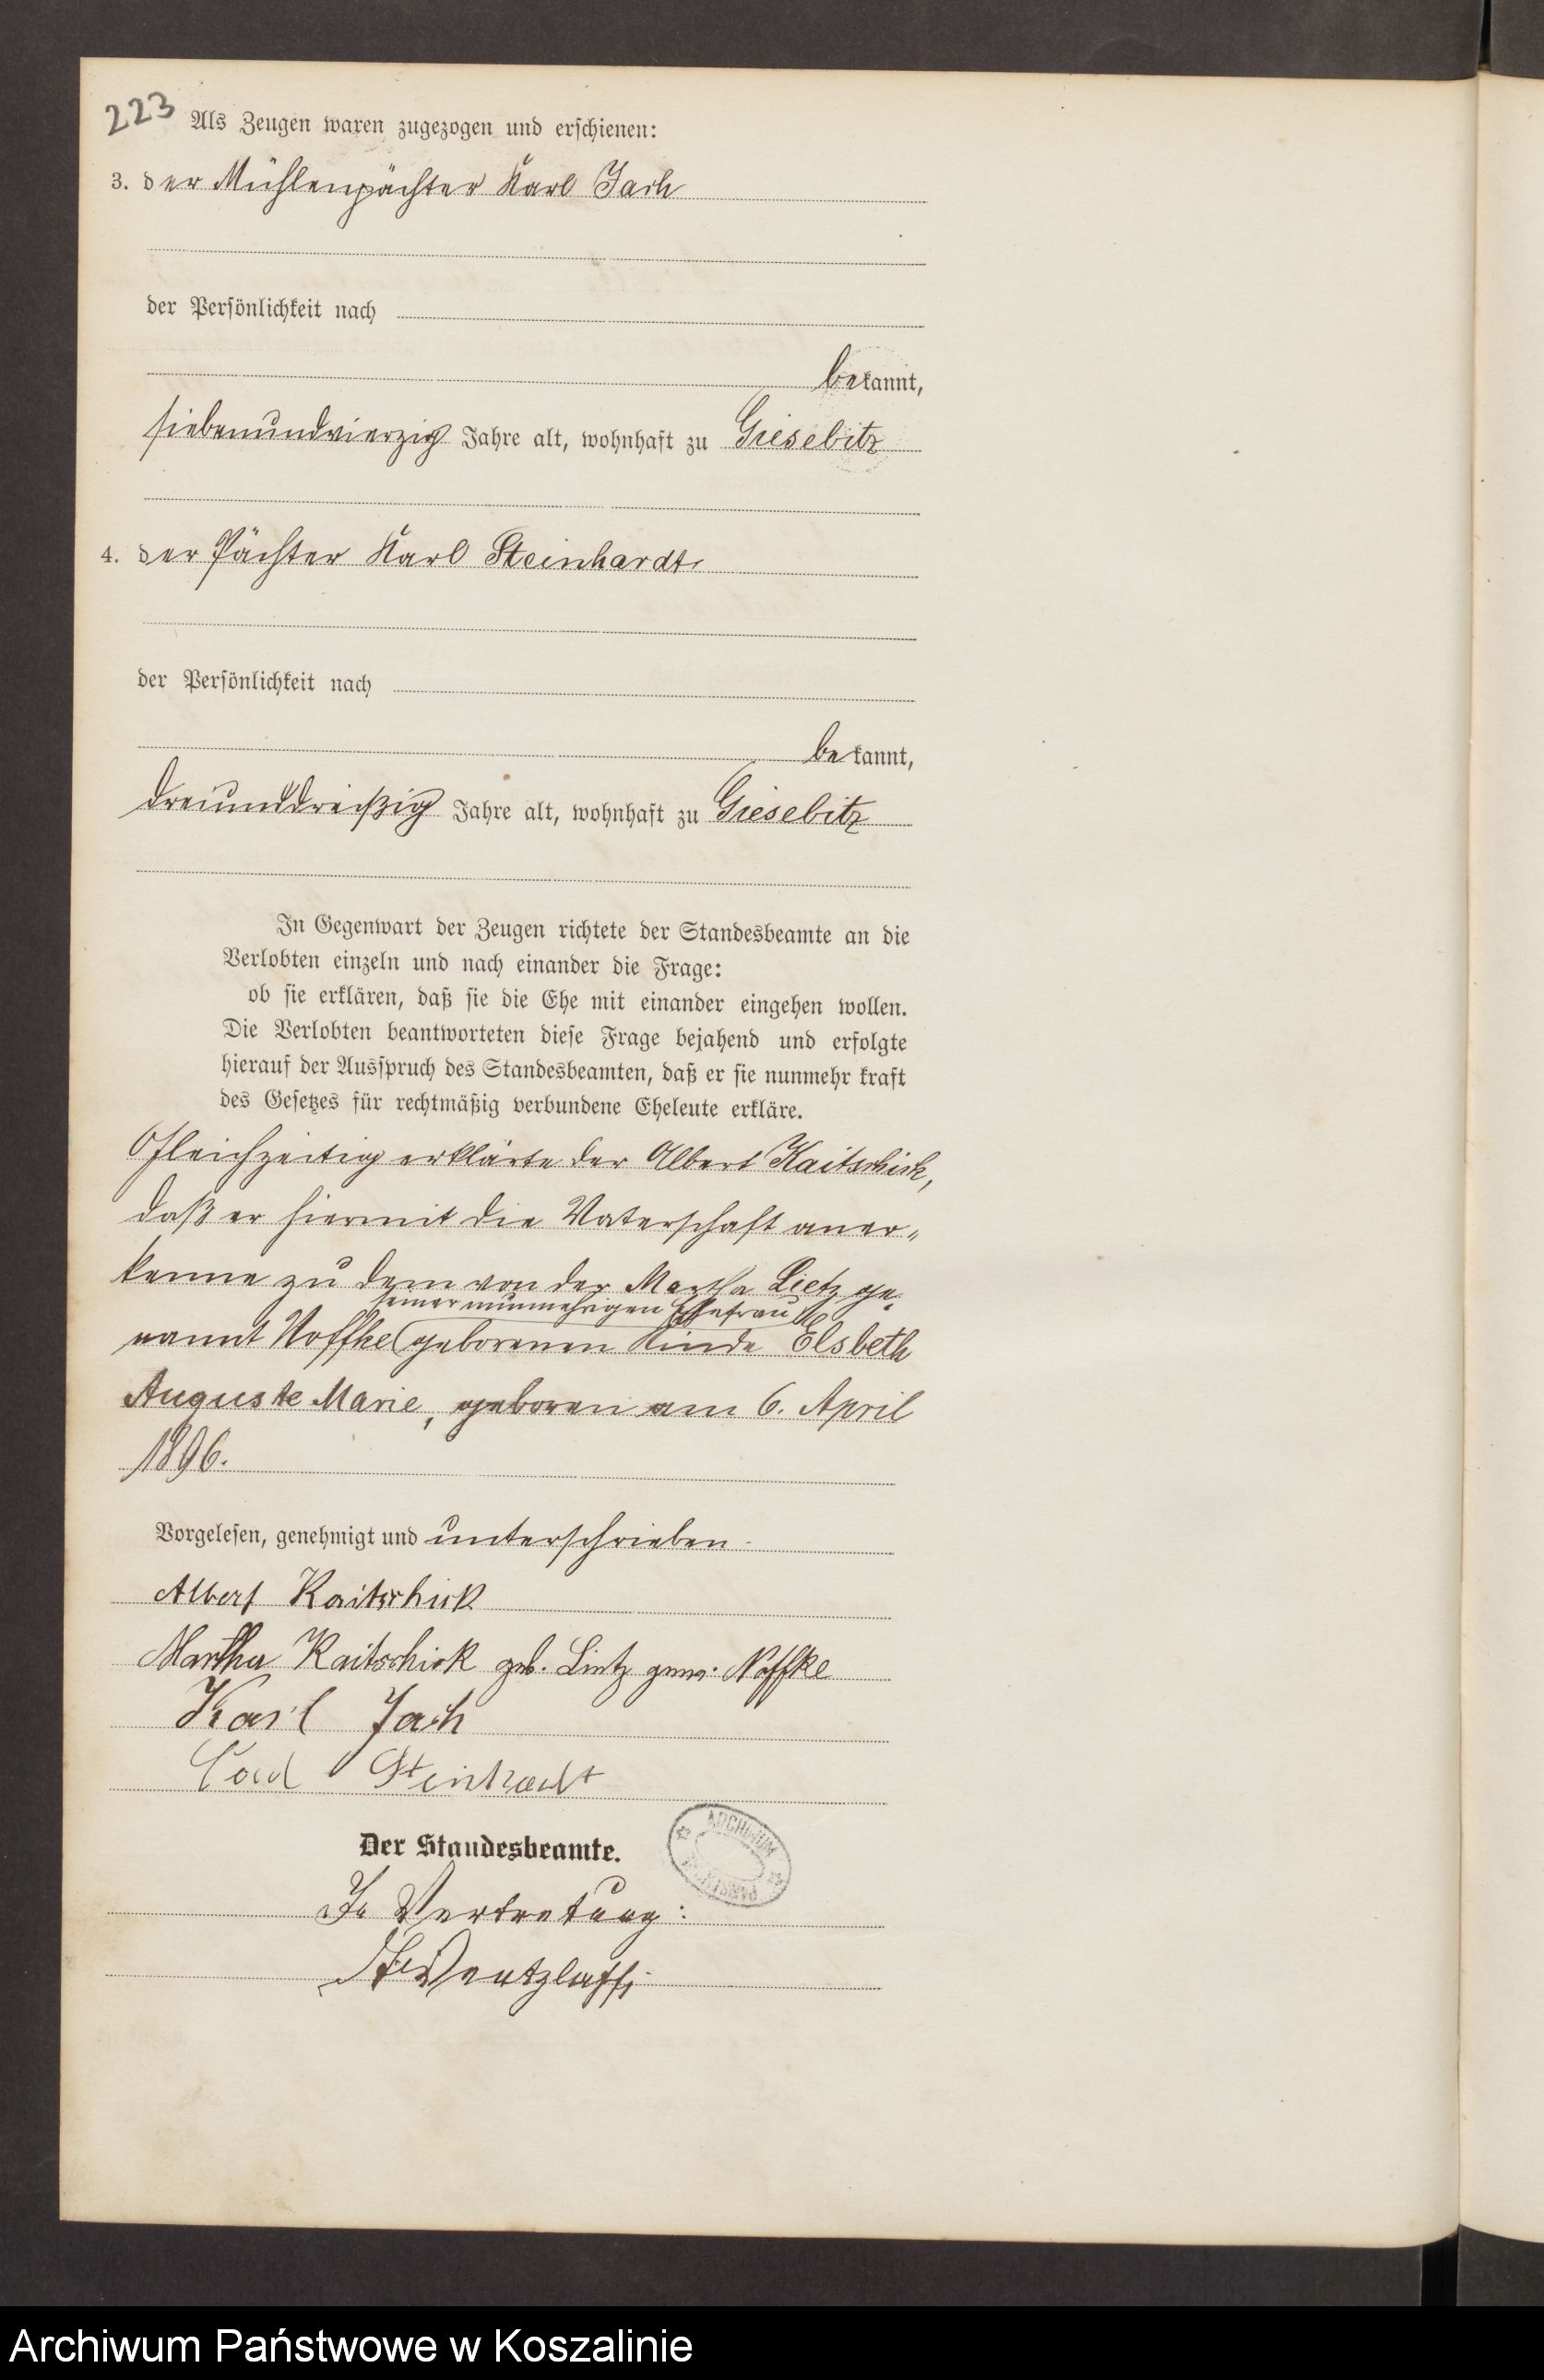 223 Als Zeugen waren zugezogen und erschienen:
3. der Mühlenpächter Karl Jach
der Persönlichkeit nach
bekannt,
siebenundvierzig Jahre alt, wohnhaft zu Giesebitz
4. der Pächter Karl Steinhardt
der Persönlichkeit nach
bekannt,
dreiunddreißig Jahre alt, wohnhaft zu Giesebitz
In Gegenwart der Zeugen richtete der Standesbeamte an die
Verlobten einzeln und nach einander die Frage:
ob sie erklären, daß sie die Ehe mit einander eingehen wollen.
Die Verlobten beantworteten diese Frage bejahend und erfolgte
hierauf der Ausspruch des Standesbeamten, daß er sie nunmehr kraft
des Gesetzes für rechtmäßig verbundene Eheleute erkläre.
Gleichzeitig erklärte der Albert Kaitschick,
daß er hiermit die Vaterschaft aner-
kenne zu dem von der Martha Lietz ge-
seiner nunmehrigen Ehefrau
nannt Noffke geborenen Kinde Elsbeth
Auguste Marie, geboren am 6. April
1896.
Vorgelesen, genehmigt und unterschrieben.
Albert Kaitschick
Martha Kaitschick geb. Lietz gen. Noffke
Karl Jach
Carl Steinhardt
Der Standesbeamte.
In Vertretung:
Wentzlaff.
ARCHIWUM
Archiwum Państwowe w Koszalinie